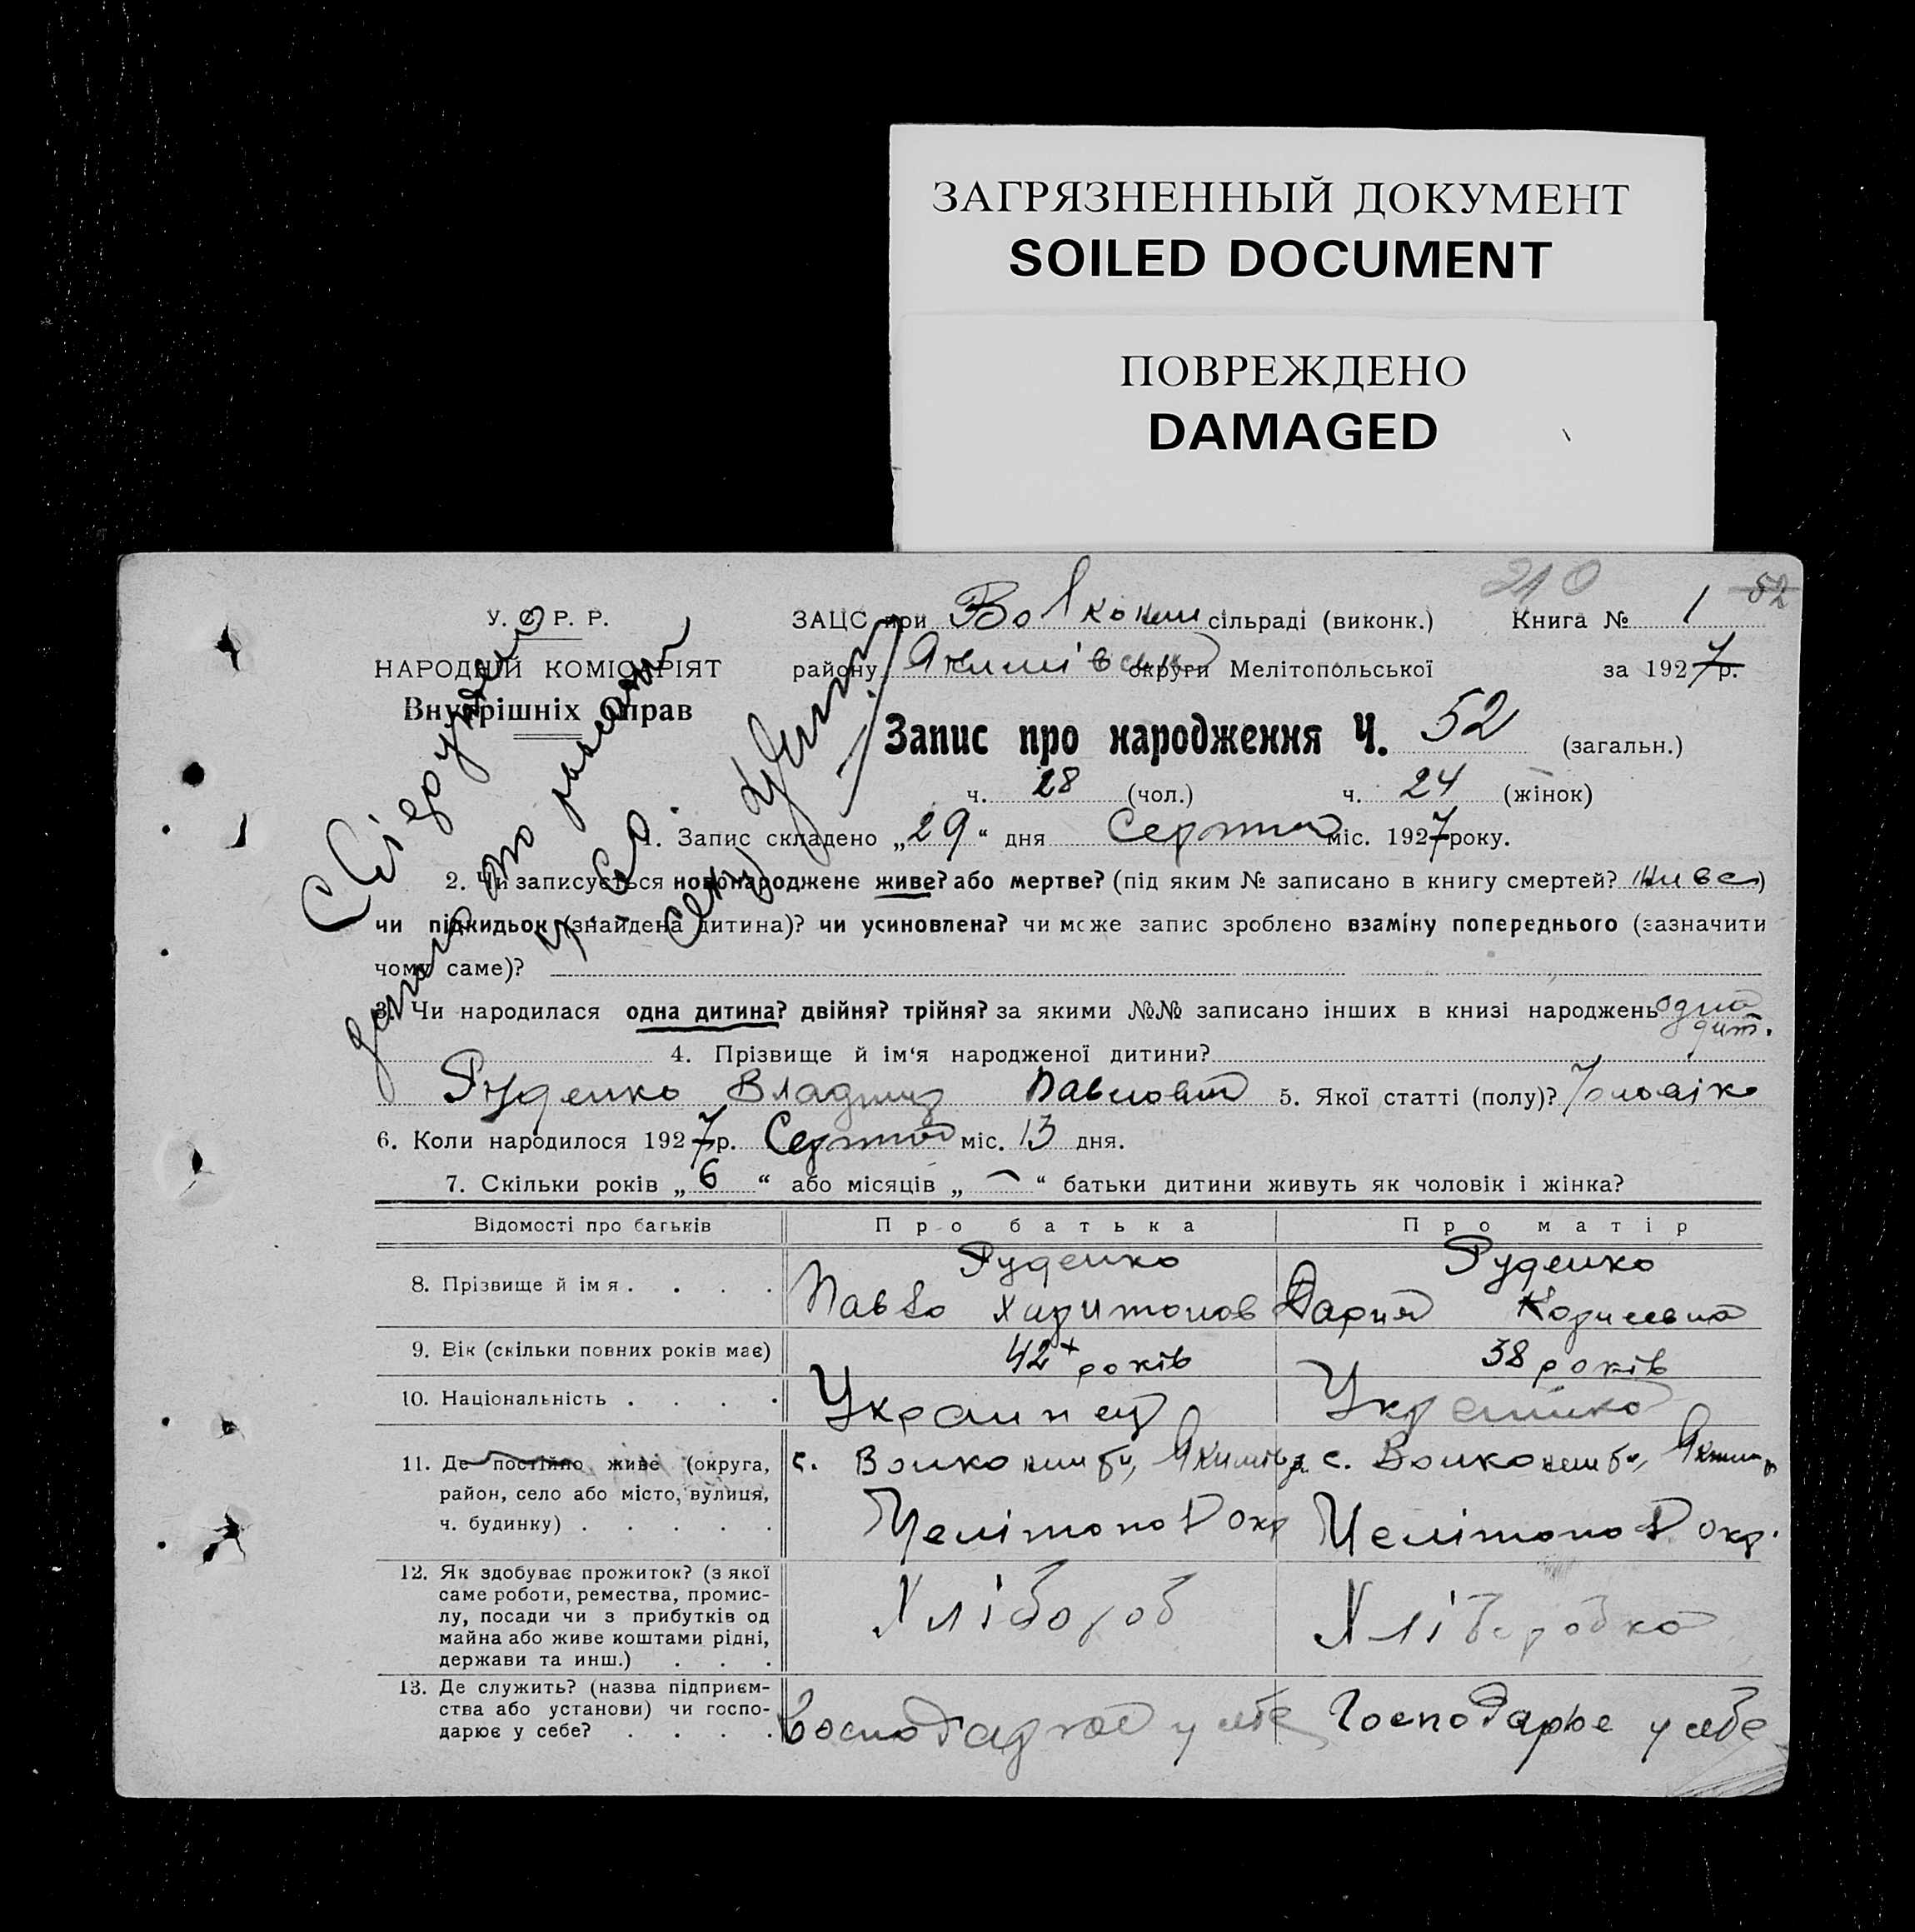 ЗАГРЯЗНЕННЫЙ ДОКУМЕНТ
SOILED DOCUMENT
ПОВРЕЖДЕНО
DAMAGED
210 52
У. С. Р. Р.
НАРОДНІЙ КОМІСАРІЯТ
Внутрішніх Справ
ЗАЦС при сільраді (виконк.) Книга № 1
району округи Мелітопольської за 1927 р.
Запис про народження Ч. 52 (загальн.)
ч. 28 (чол.) ч. 24 (жінок)
1. Запис складено „29“ дня міс. 1927 року.
2. Чи записується новонароджене живе? або мертве? (під яким № записано в книгу смертей? живе)
чи підкидьок (знайдена дитина)? чи усиновлена? чи може запис зроблено взаміну попереднього (зазначити
чому саме)?
3. Чи народилася одна дитина? двійня? трійня? за якими №№ записано інших в книзі народжень одна
дит.
4. Прізвище й ім‘я народженої дитини?
Руденко 5. Якої статті (полу)?
6. Коли народилося 1927 р. міс. 13 дня.
7. Скільки років „6“ або місяців „—“ батьки дитини живуть як чоловік і жінка?
Відомості про батьків Про батька Про матір
8. Прізвище й імя . . . . Руденко Руденко
Павло Харитонов Дария
9. Вік (скільки повних років має) 42 років 38 років
10. Національність . . . . Украинец
11. Де постійно живе (округа,
район, село або місто, вулиця,
ч. будинку) . . . . . Мелітопол окр Мелітопол окр.
12. Як здобуває прожиток? (з якої
саме роботи, ремества, промис-
лу, посади чи з прибутків од
майна або живе коштами рідні,
держави та инш.) . . . Хлібороб Хліборобка
13. Де служить? (назва підприєм-
ства або установи) чи госпо-
дарює у себе? . . . . у себе у себе